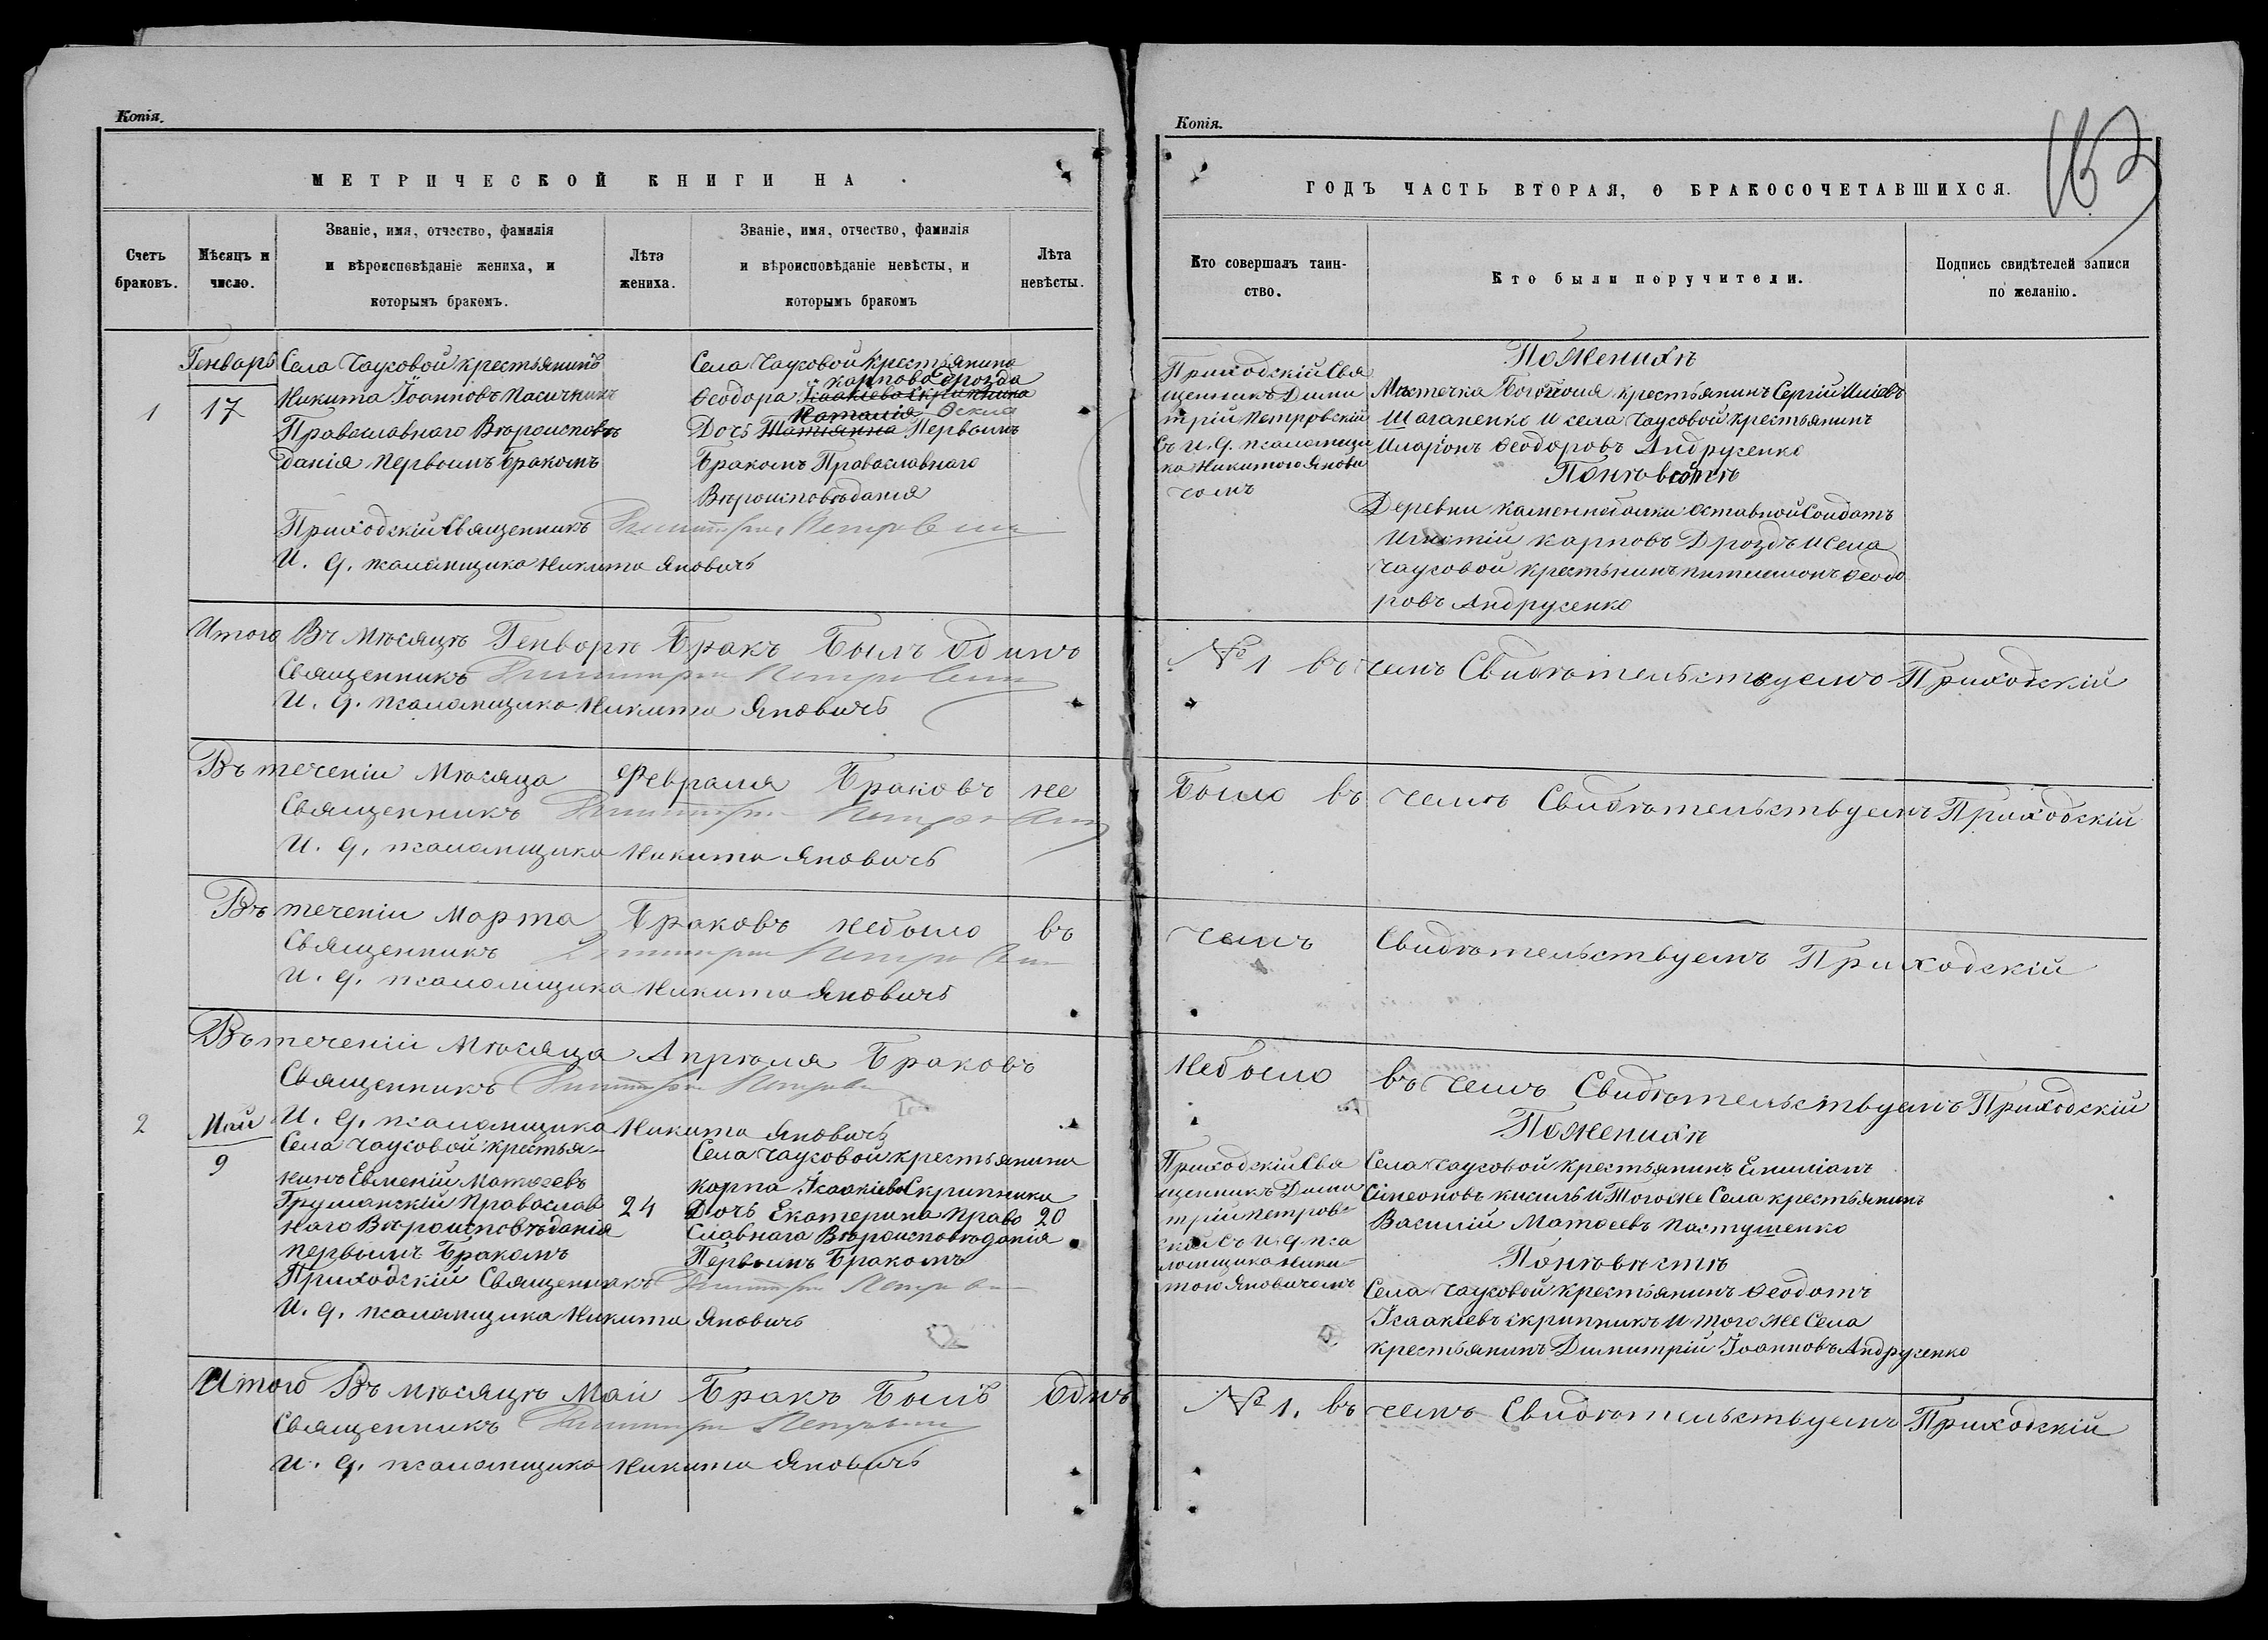 Копія.
МЕТРИЧЕСКОЙ КНИГИ НА
Счетъ браковъ.
Мѣсяцъ и число.
Званіе, имя, отчество, фамилія
и вѣроисповѣданіе жениха, и
которымъ бракомъ.
Лѣта жениха.
Званіе, имя, отчество, фамилія
и вѣроисповѣданіе невѣсты, и
которымъ бракомъ
Лѣта невѣсты.
1
Генварь
17
Села Чаусовой крестьянинъ
Никита Іоанновъ Пасичникъ
Православнаго Вѣроисповѣ
данія Первымъ Бракомъ
Села Чаусовой Крестьянина
Карпова Дрозда
Ѳеодора Ісаакіева Скрипника
Наталія
Дочь Татіанна Первымъ
Бракомъ Православнаго
Вѣроисповѣданія
Приходскій Священникъ Димитрій Петровскій
И. д. псаломщика Никита Яновичъ
Итого Въ Мѣсяцѣ Генворѣ Бракъ Былъ Одинъ
Священникъ Димитрій Петровскій
И. д. псаломщика Никита Яновичъ
Въ теченіи Мѣсяца Февраля Браковъ не
Священникъ Димитрій Петровскій
И. д. псаломщика Никита Яновичъ
Въ теченіи Марта Браковъ небыло въ
Священникъ Димитрій Петровскій
И. д. псаломщика Никита Яновичъ
Въ теченіи Мѣсяца Апрѣля Браковъ
Священникъ Димитрій Петровскій
И. д. псаломщика Никита Яновичъ
2
Май
9
Села Чаусовой крестья-
нинъ Евменій Матѳеевъ
Груманскій Православ
наго Вѣроисповѣданія
первымъ Бракомъ
24
Села Чаусовой крестьянина
Карпа Ісаакіева Скрипника
Дочь Екатерина Право
славнаго Вѣроисповѣданія
Первымъ Бракомъ
20
Приходскій Священникъ Димитрій Петровскій
И. д. псаломщика Никита Яновичъ
Итого Въ мѣсяцѣ Маи Бракъ Былъ Одинъ
Священникъ Димитрій Петровскій
И. д. псаломщика Никита Яновичъ
Копія.
ГОДЪ ЧАСТЬ ВТОРАЯ, О БРАКОСОЧЕТАВШИХСЯ.
Кто совершалъ таин-
ство.
Кто были поручители.
Подпись свидѣтелей записи
по желанію.
Приходскій Свя
щенникъ Дими
трій Петровскій
съ И. д. псаломщи
ка Никитою Янови
чомъ
По Женихѣ
Мѣстечка Богополя крестьянинъ Сергій Иліевъ
Шагапенко и села Чаусовой крестьянинъ
Иларіонъ Ѳеодоровъ Андрусенко
По невѣстѣ
Деревни Каменной балки отставной Солдатъ
Игнатій Карповъ Дроздъ и села
Чаусовой крестьнинъ Пителимонъ Ѳеодо
ровъ Андрусенко
№ 1 въ чемъ Свидѣтельствуемъ Приходскій
Было въ чемъ Свидѣтельствуемъ Приходскій
чемъ Свидѣтельствуемъ Приходскій
Небыло въ чемъ Свидѣтельствуемъ Приходскій
Приходскій Свя
щенникъ Дими
трій Петров-
скій съ И. д. пса
ломщика Ники-
тою Яновичомъ
По Женихѣ
Села Чаусовой крестьянинъ Емиліанъ
Сімеоновъ Кисиль и Того же Села крестьянинъ
Василій Матѳеевъ Пастушенко
По невѣстѣ
Села Чаусовой крестьянинъ Ѳеодотъ
Ісаакіевъ Скрипникъ и того же Села
крестьянинъ Димитрій Іоанновъ Андрусенко
№ 1. въ чемъ Свидѣтельствуемъ Приходскій